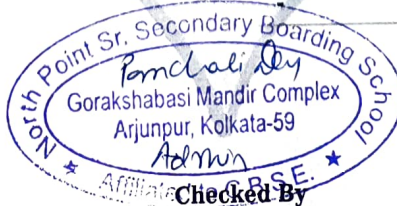 North Point Sr. Secondary Boarding School
Panchali Dey
Gorakshabasi Mandir Complex
Arjunpur, Kolkata-59
Admin
Affiliated to C.B.S.E.
Checked By